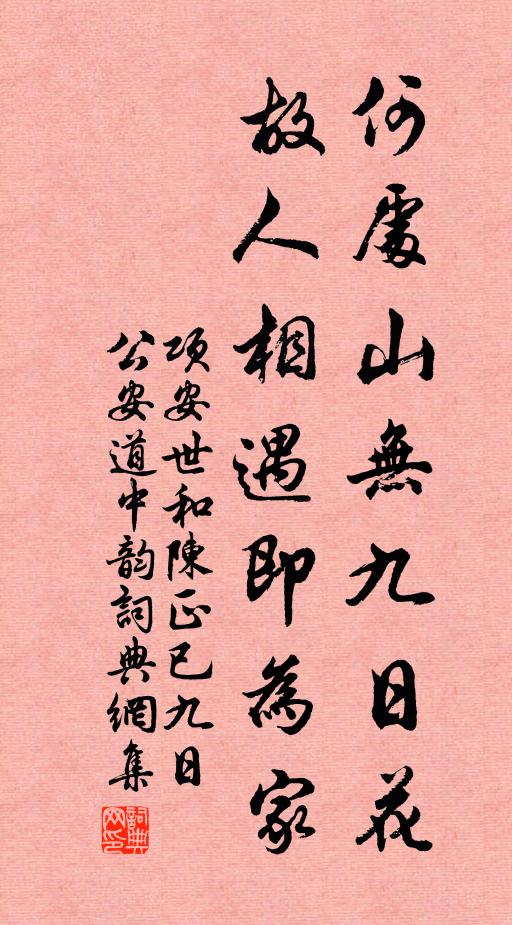 何處山無九日花
故人相遇即為家
項安世和陳正已九日
公安道中韵詞典網集
詞典网印